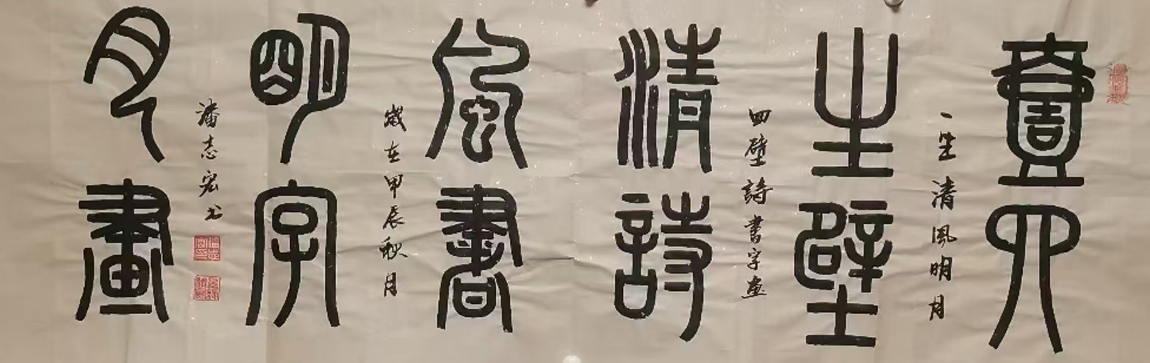 壹生清風明月
四壁詩書字畫
一生清風明月
四壁詩書字画
歲在甲辰秋月
潘志宏书